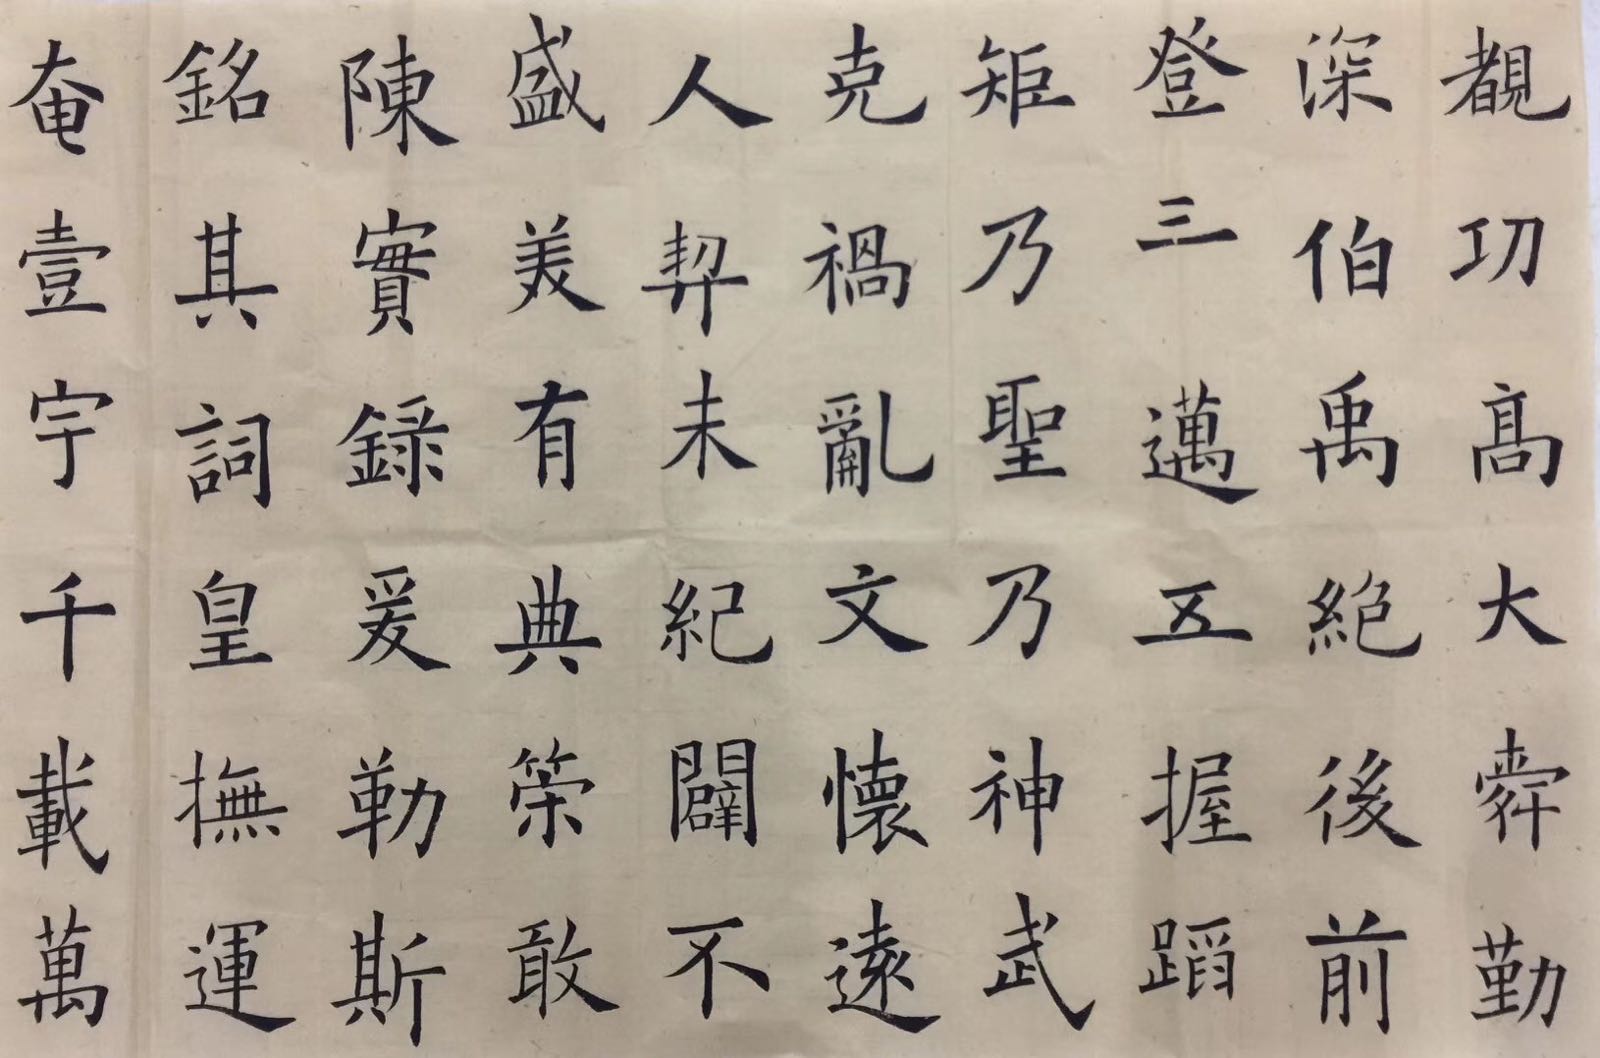 覩功高大舜勤
深伯禹絶後前
登三邁五握蹈
矩乃聖乃神武
克禍亂文懷遠
人契未紀闢不
盛美有典䇿敢
陳實録爰勒斯
銘其詞皇撫運
奄壹宇千載萬